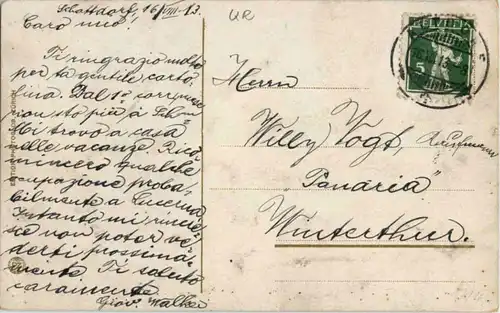 Schattdorf, 16/VIII - 13.
Caro mio!
Ti ringrazio molto
per ta gentile carto-
lina. Dal 1º corr.
non sto più a
Mi trovo a casa
nelle vacanze.
mincerò qualche
occupazione proba-
bilmente a Lucerna.
Intanto mi rincre-
sce non poter ve-
derti prossima-
mente. Ti saluto
caramente.
Giov. Walker
UR
HELVETIA
5
Herrn
Willy Vogt, Kaufmann
"Panaria"
Winterthur.